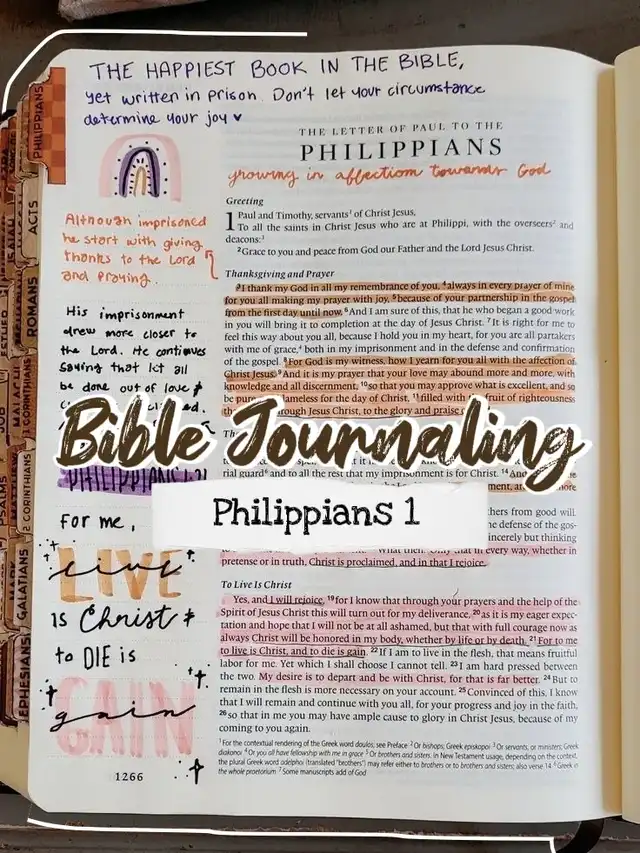 THE HAPPIEST BOOK IN THE BIBLE,
yet written in prison. Don't let your circumstance
determine your joy ♥
PHILIPPIANS
ACTS
ROMANS
1 CORINTHIANS
2 CORINTHIANS
GALATIANS
EPHESIANS
MALACHI
PSALMS
MARK
Although imprisoned
he start with giving
thanks to the Lord
and praying.
His imprisonment
drew more closer to
the Lord. He continues
saying that let all
be done out of love &
PHILIPPIANS 1:21
For me,
LIVE
live
is Christ &
to DIE is
GAIN
gain
1266
THE LETTER OF PAUL TO THE
PHILIPPIANS
growing in affection towards God
Greeting
1 Paul and Timothy, servants¹ of Christ Jesus,
To all the saints in Christ Jesus who are at Philippi, with the overseers² and
deacons:³
²Grace to you and peace from God our Father and the Lord Jesus Christ.
Thanksgiving and Prayer
³I thank my God in all my remembrance of you, ⁴always in every prayer of mine
for you all making my prayer with joy, ⁵because of your partnership in the gospel
from the first day until now. ⁶And I am sure of this, that he who began a good work
in you will bring it to completion at the day of Jesus Christ. ⁷It is right for me to
feel this way about you all, because I hold you in my heart, for you are all partakers
with me of grace,⁴ both in my imprisonment and in the defense and confirmation
of the gospel. ⁸For God is my witness, how I yearn for you all with the affection of
Christ Jesus. ⁹And it is my prayer that your love may abound more and more, with
knowledge and all discernment, ¹⁰so that you may approve what is excellent, and so
be pure blameless for the day of Christ, ¹¹filled with fruit of righteousness
through Jesus Christ, to the glory and praise
Bible Journaling
Philippians 1
rial guard⁶ and to all the rest that my imprisonment is for Christ. ¹⁴And
more
others from good will.
he defense of the gos-
sincerely but thinking
What then? Only that in every way, whether in
pretense or in truth, Christ is proclaimed, and in that I rejoice.
To Live Is Christ
Yes, and I will rejoice, ¹⁹for I know that through your prayers and the help of the
Spirit of Jesus Christ this will turn out for my deliverance, ²⁰as it is my eager expec-
tation and hope that I will not be at all ashamed, but that with full courage now as
always Christ will be honored in my body, whether by life or by death. ²¹For to me
to live is Christ, and to die is gain. ²²If I am to live in the flesh, that means fruitful
labor for me. Yet which I shall choose I cannot tell. ²³I am hard pressed between
the two. My desire is to depart and be with Christ, for that is far better. ²⁴But to
remain in the flesh is more necessary on your account. ²⁵Convinced of this, I know
that I will remain and continue with you all, for your progress and joy in the faith,
²⁶so that in me you may have ample cause to glory in Christ Jesus, because of my
coming to you again.
¹For the contextual rendering of the Greek word doulos, see Preface ²Or bishops; Greek episkopoi ³Or servants, or ministers; Greek
diakonoi ⁴Or you all have fellowship with me in grace ⁵Or brothers and sisters. In New Testament usage, depending on the context,
the plural Greek word adelphoi (translated "brothers") may refer either to brothers or to brothers and sisters; also verse 14 ⁶Greek in
the whole praetorium ⁷Some manuscripts add of God